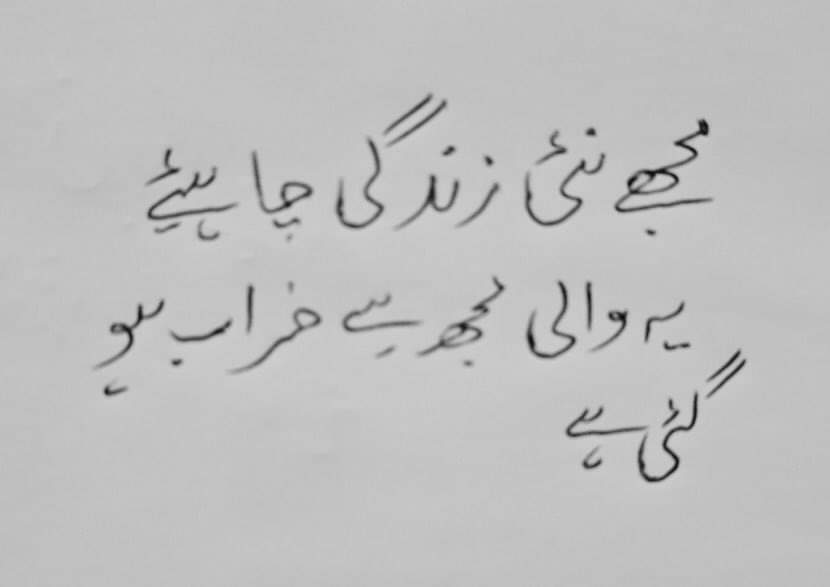 مجھے نئی زندگی چاہئیے
یہ والی مجھ سے خراب ہو
گئی ہے